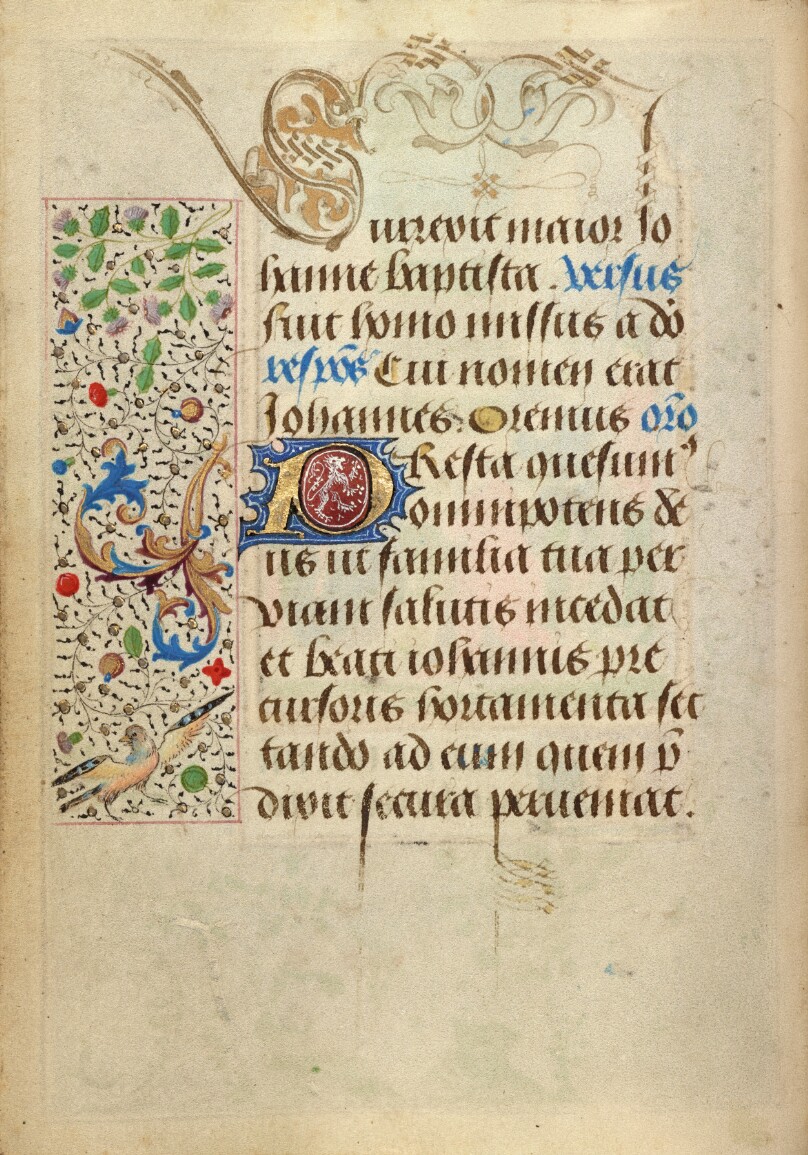 Surrexit maior Jo
hanne baptista. versus
fuit homo missus a dō
respōs Cui nomen erat
Johannes. Oremus orō
PResta quesum⁹
omnipotens de
us ut familia tua per
viam salutis incedat
et beati iohannis pre
cursoris hortamenta sec
tando ad eum quem p̄
dixit secura perueniat.